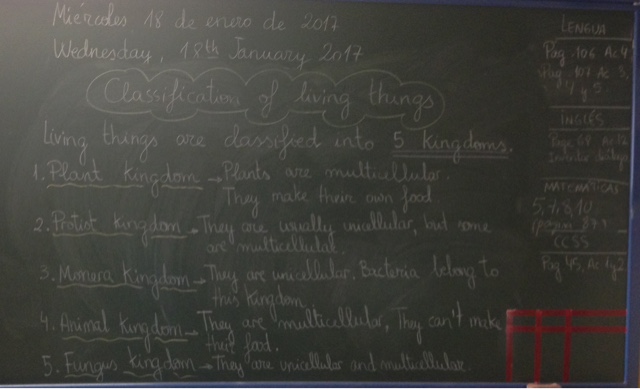 Miércoles 18 de enero de 2017
Wednesday, 18th January 2017
Classification of living things
Living things are classified into 5 kingdoms.
1. Plant kingdom → Plants are multicellular.
They make their own food.
2. Protist kingdom → They are usually unicellular, but some
are multicellular.
3. Monera kingdom → They are unicellular. Bacteria belong to
this kingdom
4. Animal kingdom → They are multicellular, They can't make
their food.
5. Fungus kingdom → They are unicellular and multicellular.
LENGUA
Pág. 106 Ac 4
Pág. 107 Ac 3,
y 5.
INGLÉS
Page 68 Ac 12
MATEMÁTICAS
5, 7, 8, 10
CCSS
Pág 45, Ac 1 y 2